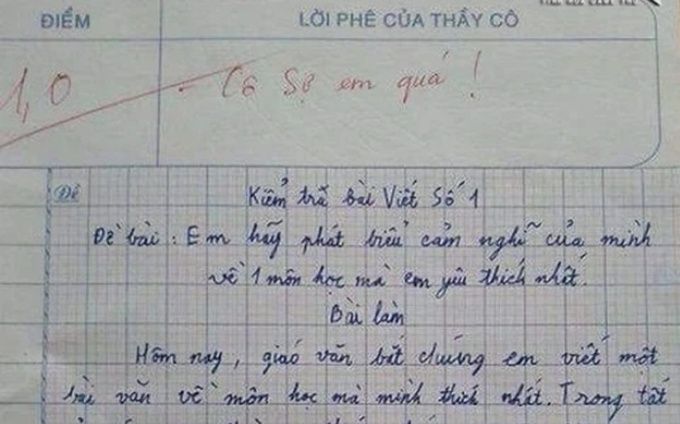 ĐIỂM
LỜI PHÊ CỦA THẦY CÔ
1,0
- Cô Sợ em quá !
Đề
Kiểm trả Bài Viết Số 1
Đề bài : Em hãy phát biểu cảm nghĩ của mình
về 1 môn học mà em yêu thích nhất.
Bài làm
Hôm nay, giáo văn bắt chúng em viết một
bài văn về môn học mà mình thích nhất. Trong tất